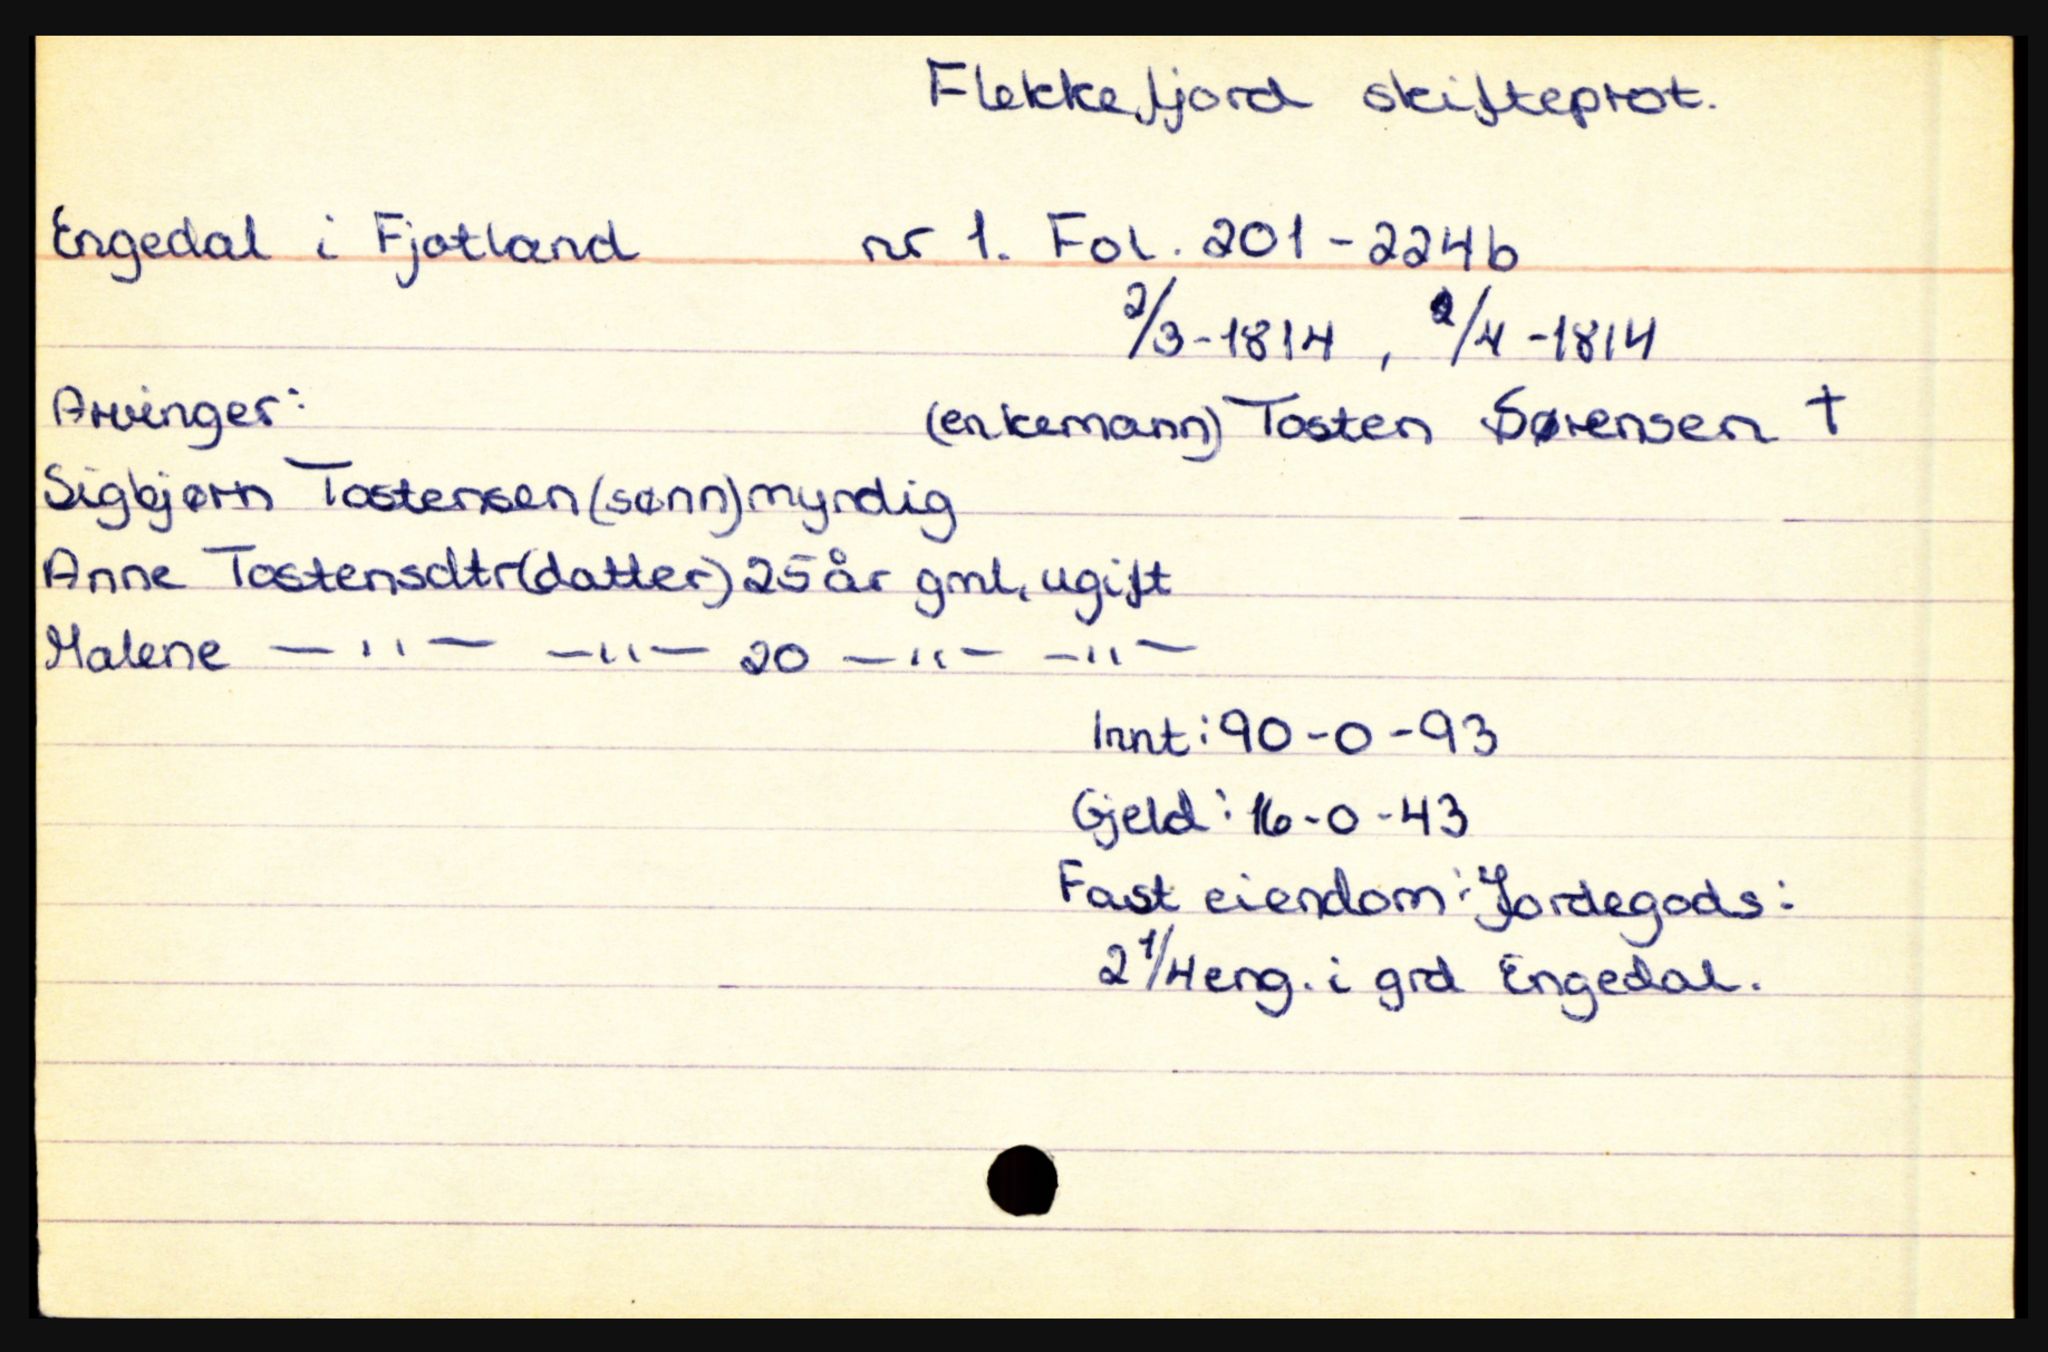 Flekkefjord skifteprot.
Engedal i Fjotland nr 1. Fol. 201-224b
2/3-1814, 2/4-1814
Arvinger: (enkemann) Tosten Sørensen †
Sigbjørn Tostensen (sønn) myndig
Anne Tostensdtr (datter) 25 år gml, ugift
Malene —"— —"— 20 —"— —"—
Innt: 90-0-93
Gjeld: 16-0-43
Fast eiendom: Jordegods:
2 1/4 eng. i grd Engedal.